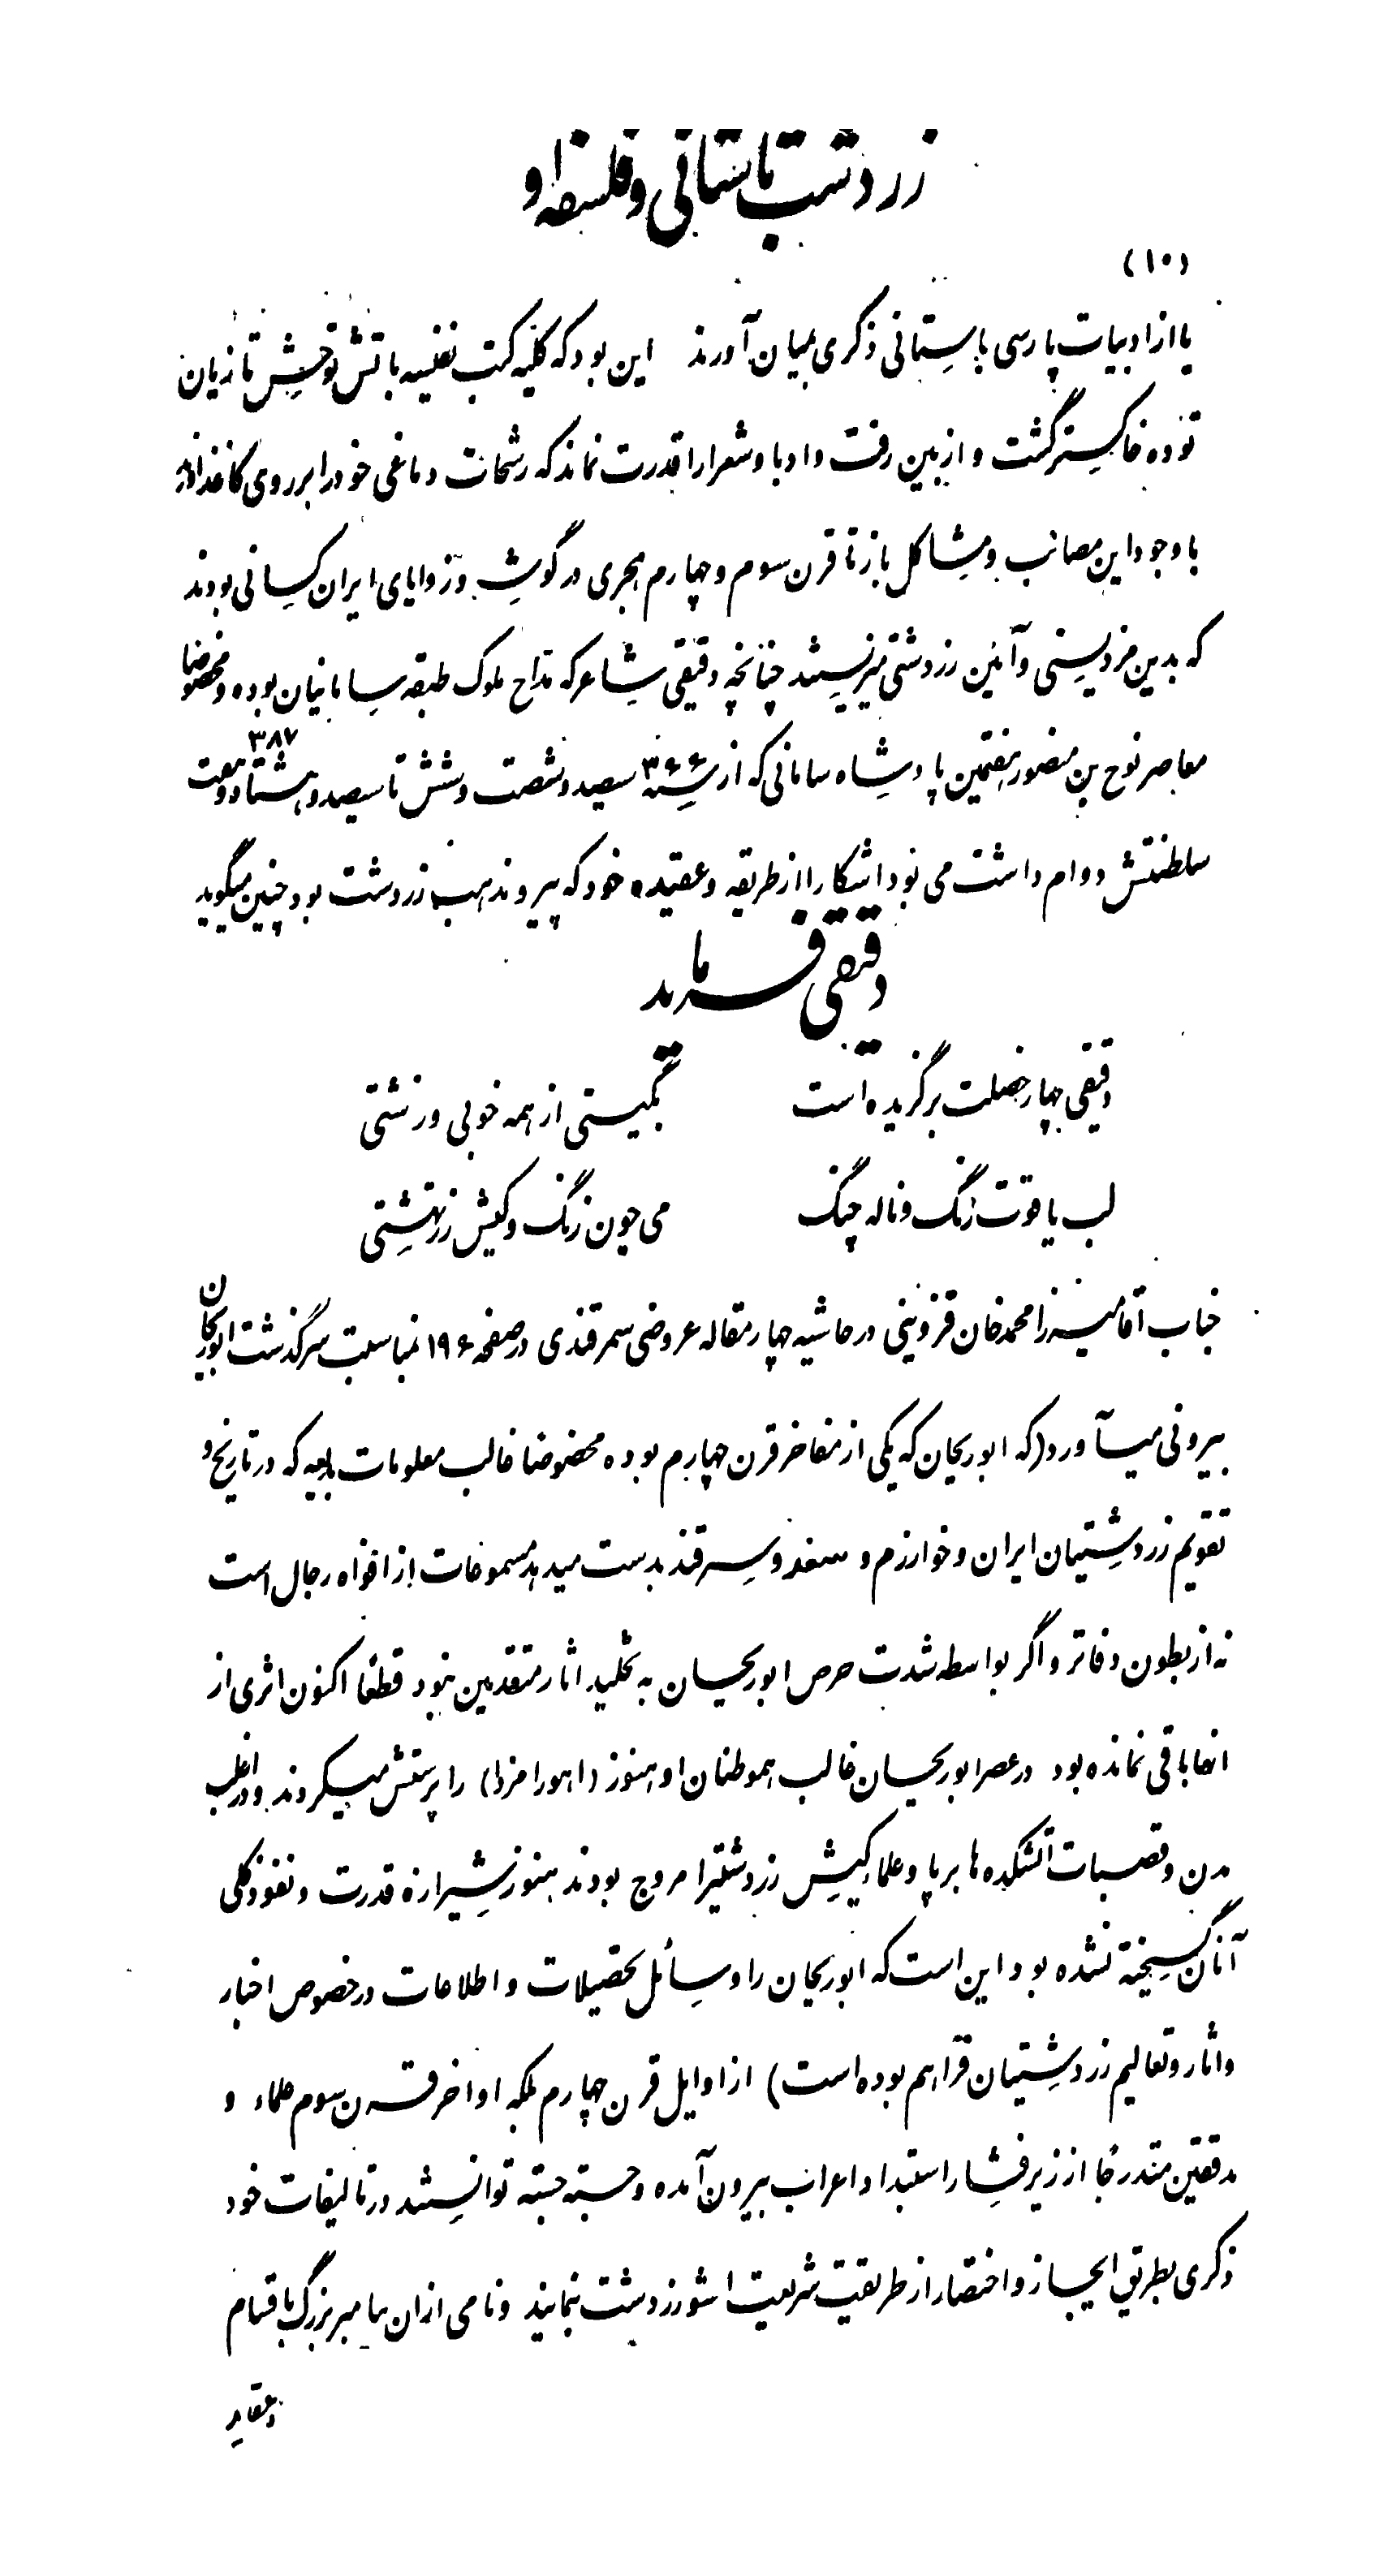 زردشت باستانی و فلسفه او
(۱۰)
یا از ادبیات پارسی باستانی ذکری بمیان آورند این بود که کلیه کتب نفیسه باتش توحش تازیان
توده خاکستر گشت و از بین رفت و ادبا و شعرا را قدرت نماند که رشحات دماغی خود را بر روی کاغذ
با وجود این مصائب و مشاکل باز تا قرن سوم و چهارم هجری در گوشه و زوایای ایران کسانی بودند
که بدین مزدیسنی و آئین زردشتی میزیستند چنانچه دقیقی شاعر که مداح ملوک طبقه سامانیان بوده و مخصوصا
معاصر نوح بن منصور هفتمین پادشاه سامانی که از سنه ۳۶۶ سیصد و شصت و شش تا سیصد و هشتاد و هفت ۳۸۷
سلطنتش دوام داشت می بود اشکارا از طریقه و عقیده خود که پیرو مذهب زردشت بود چنین میگوید
دقیقی فرماید
دقیقی چهار خصلت برگزیده است بگیتی از همه خوبی و زشتی
لب یاقوت رنگ و ناله چنگ می چون زنگ و کیش زرتهشتی
جناب آقا میرزا محمد خان قزوینی در حاشیه چهار مقاله عروضی سمرقندی در صفحه ۱۹۶ بمناسبت سرگذشت ابوریحان
بیرونی میآورد (که ابوریحان که یکی از مفاخر قرن چهارم بوده مخصوصا غالب معلومات که در تاریخ و
تقویم زردشتیان ایران و خوارزم و سغد و سمرقند بدست میدهد مسموعات از افواه رجال است
نه از بطون دفاتر و اگر بواسطه شدت حرص ابوریحان به تخلید اثار متقدمین نبود قطعا اکنون اثری از
انها باقی نمانده بود در عصر ابوریحان غالب هموطنان او هنوز (اهورا مزدا) را پرستش میکردند و در اغلب
مدن و قصبات آتشکده ها بر پا و علماء کیش زردشتیرا مروج بودند هنوز شیرازه قدرت و نفوذ کلی
آنان گسیخته نشده بود این است که ابوریحان را وسائل تحصیلات و اطلاعات در خصوص اخبار
و اثار و تعالیم زردشتیان فراهم بوده است) از اوایل قرن چهارم بلکه اواخر قرن سوم علماء و
مدققین متدرجا از زیر فشار استبداد اعراب بیرون آمده و جسته جسته توانستند در تالیفات خود
ذکری بطریق ایجاز و اختصار از طریقت شریعت اشو زردشت بنمایند و نامی از ان پیامبر بزرگ با قسام
و عقاید